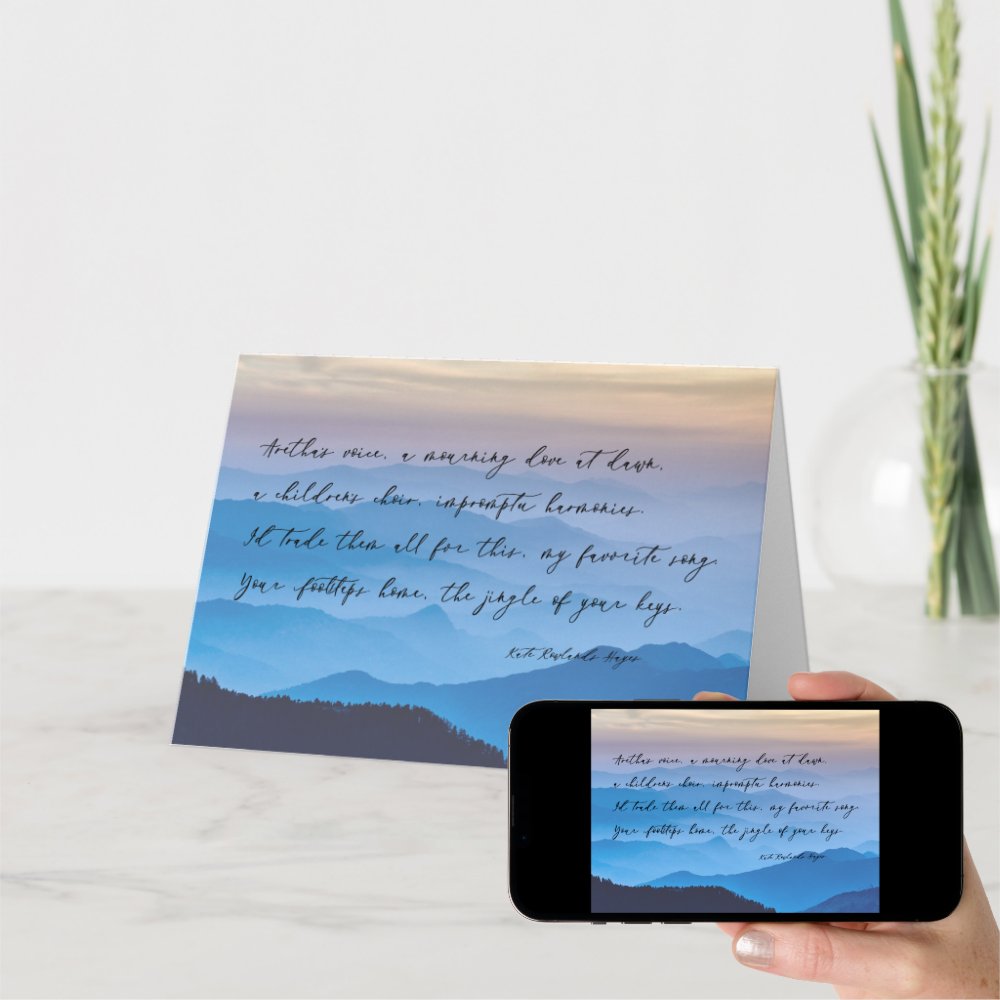 Aretha's voice, a mourning dove at dawn,
a children's choir, impromptu harmonies.
I'd trade them all for this, my favorite song:
Your footsteps home, the jingle of your keys.
Kate Rowlands Hayes
Aretha's voice, a mourning dove at dawn,
a children's choir, impromptu harmonies.
I'd trade them all for this, my favorite song:
Your footsteps home, the jingle of your keys.
Kate Rowlands Hayes